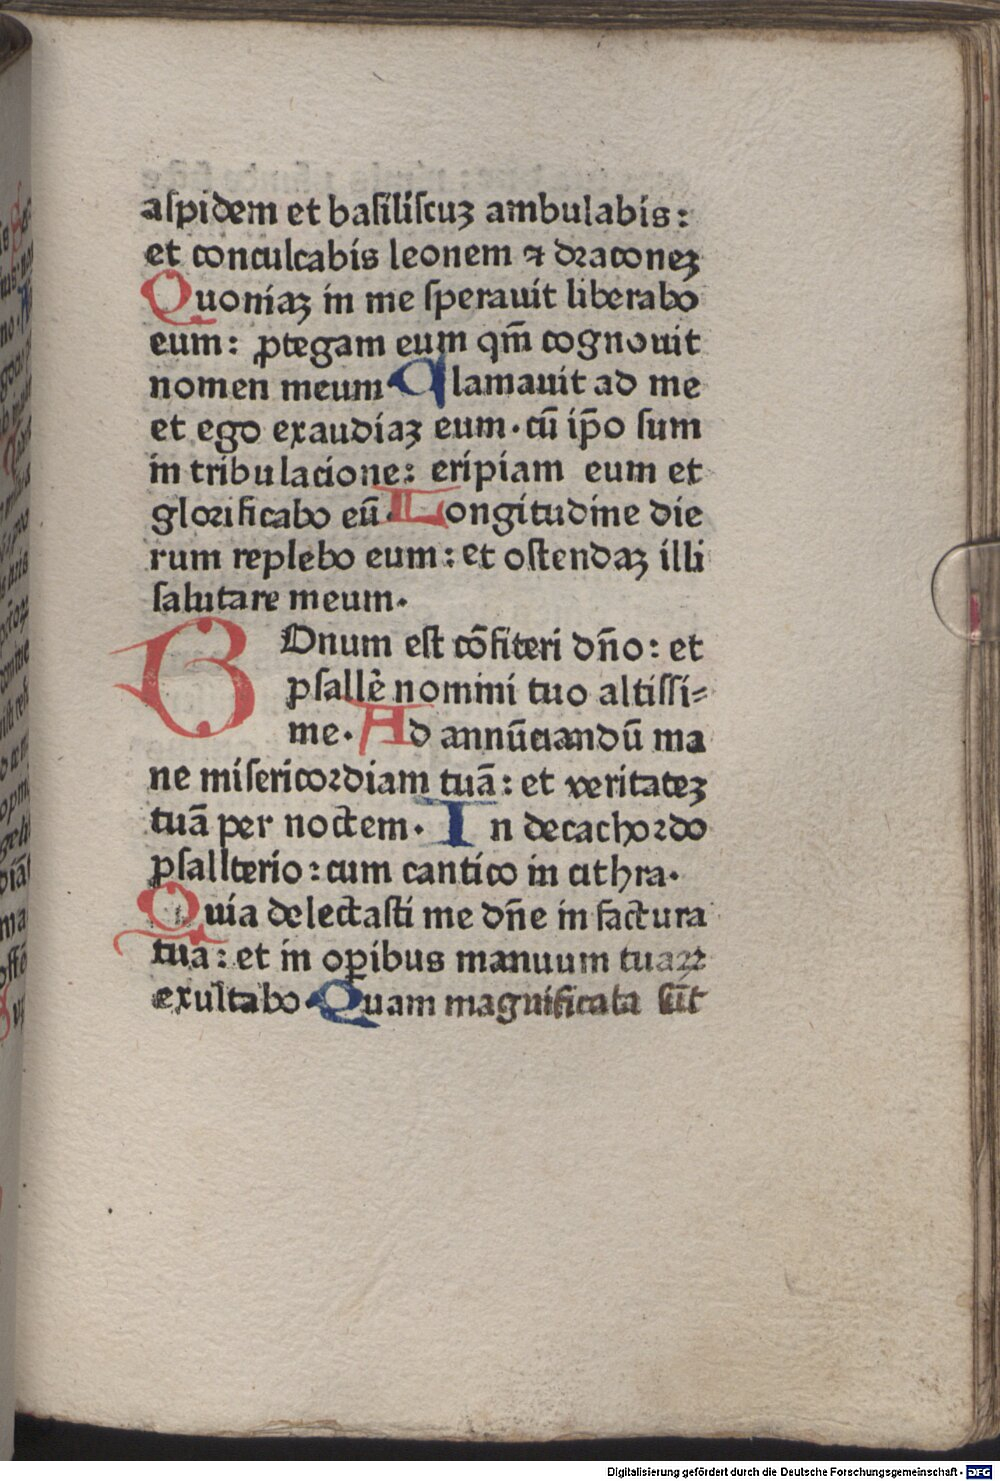 aſpidem et baſiliſcuꝫ ambulabis:
et conculcabis leonem ⁊ dꝛaconeꝫ
Quoniaꝫ in me ſperauit liberabo
eum: ꝓtegam eum qm̄ cognouit
nomen meum Clamauit ad me
et ego exaudiaꝫ eum. cū ip̄o ſum
in tribulacione: eripiam eum et
gloꝛificabo eū. Longitudine die
rum replebo eum: et oſtendaꝫ illi
ſalutare meum.
BOnum eſt cōfiteri dn̄o: et
pſallē nomini tuo altiſſi⸗
me. Ad annūciandū ma
ne miſericoꝛdiam tuā: et veritateꝫ
tuā per noctem. In decachoꝛdo
pſallterio: cum cantico in cithra.
Quia delectaſti me dn̄e in factura
tua: et in oꝑibus manuum tuaꝝ
exultabo. Quam magnificata ſūt
Digitalisierung gefördert durch die Deutsche Forschungsgemeinschaft - DFG